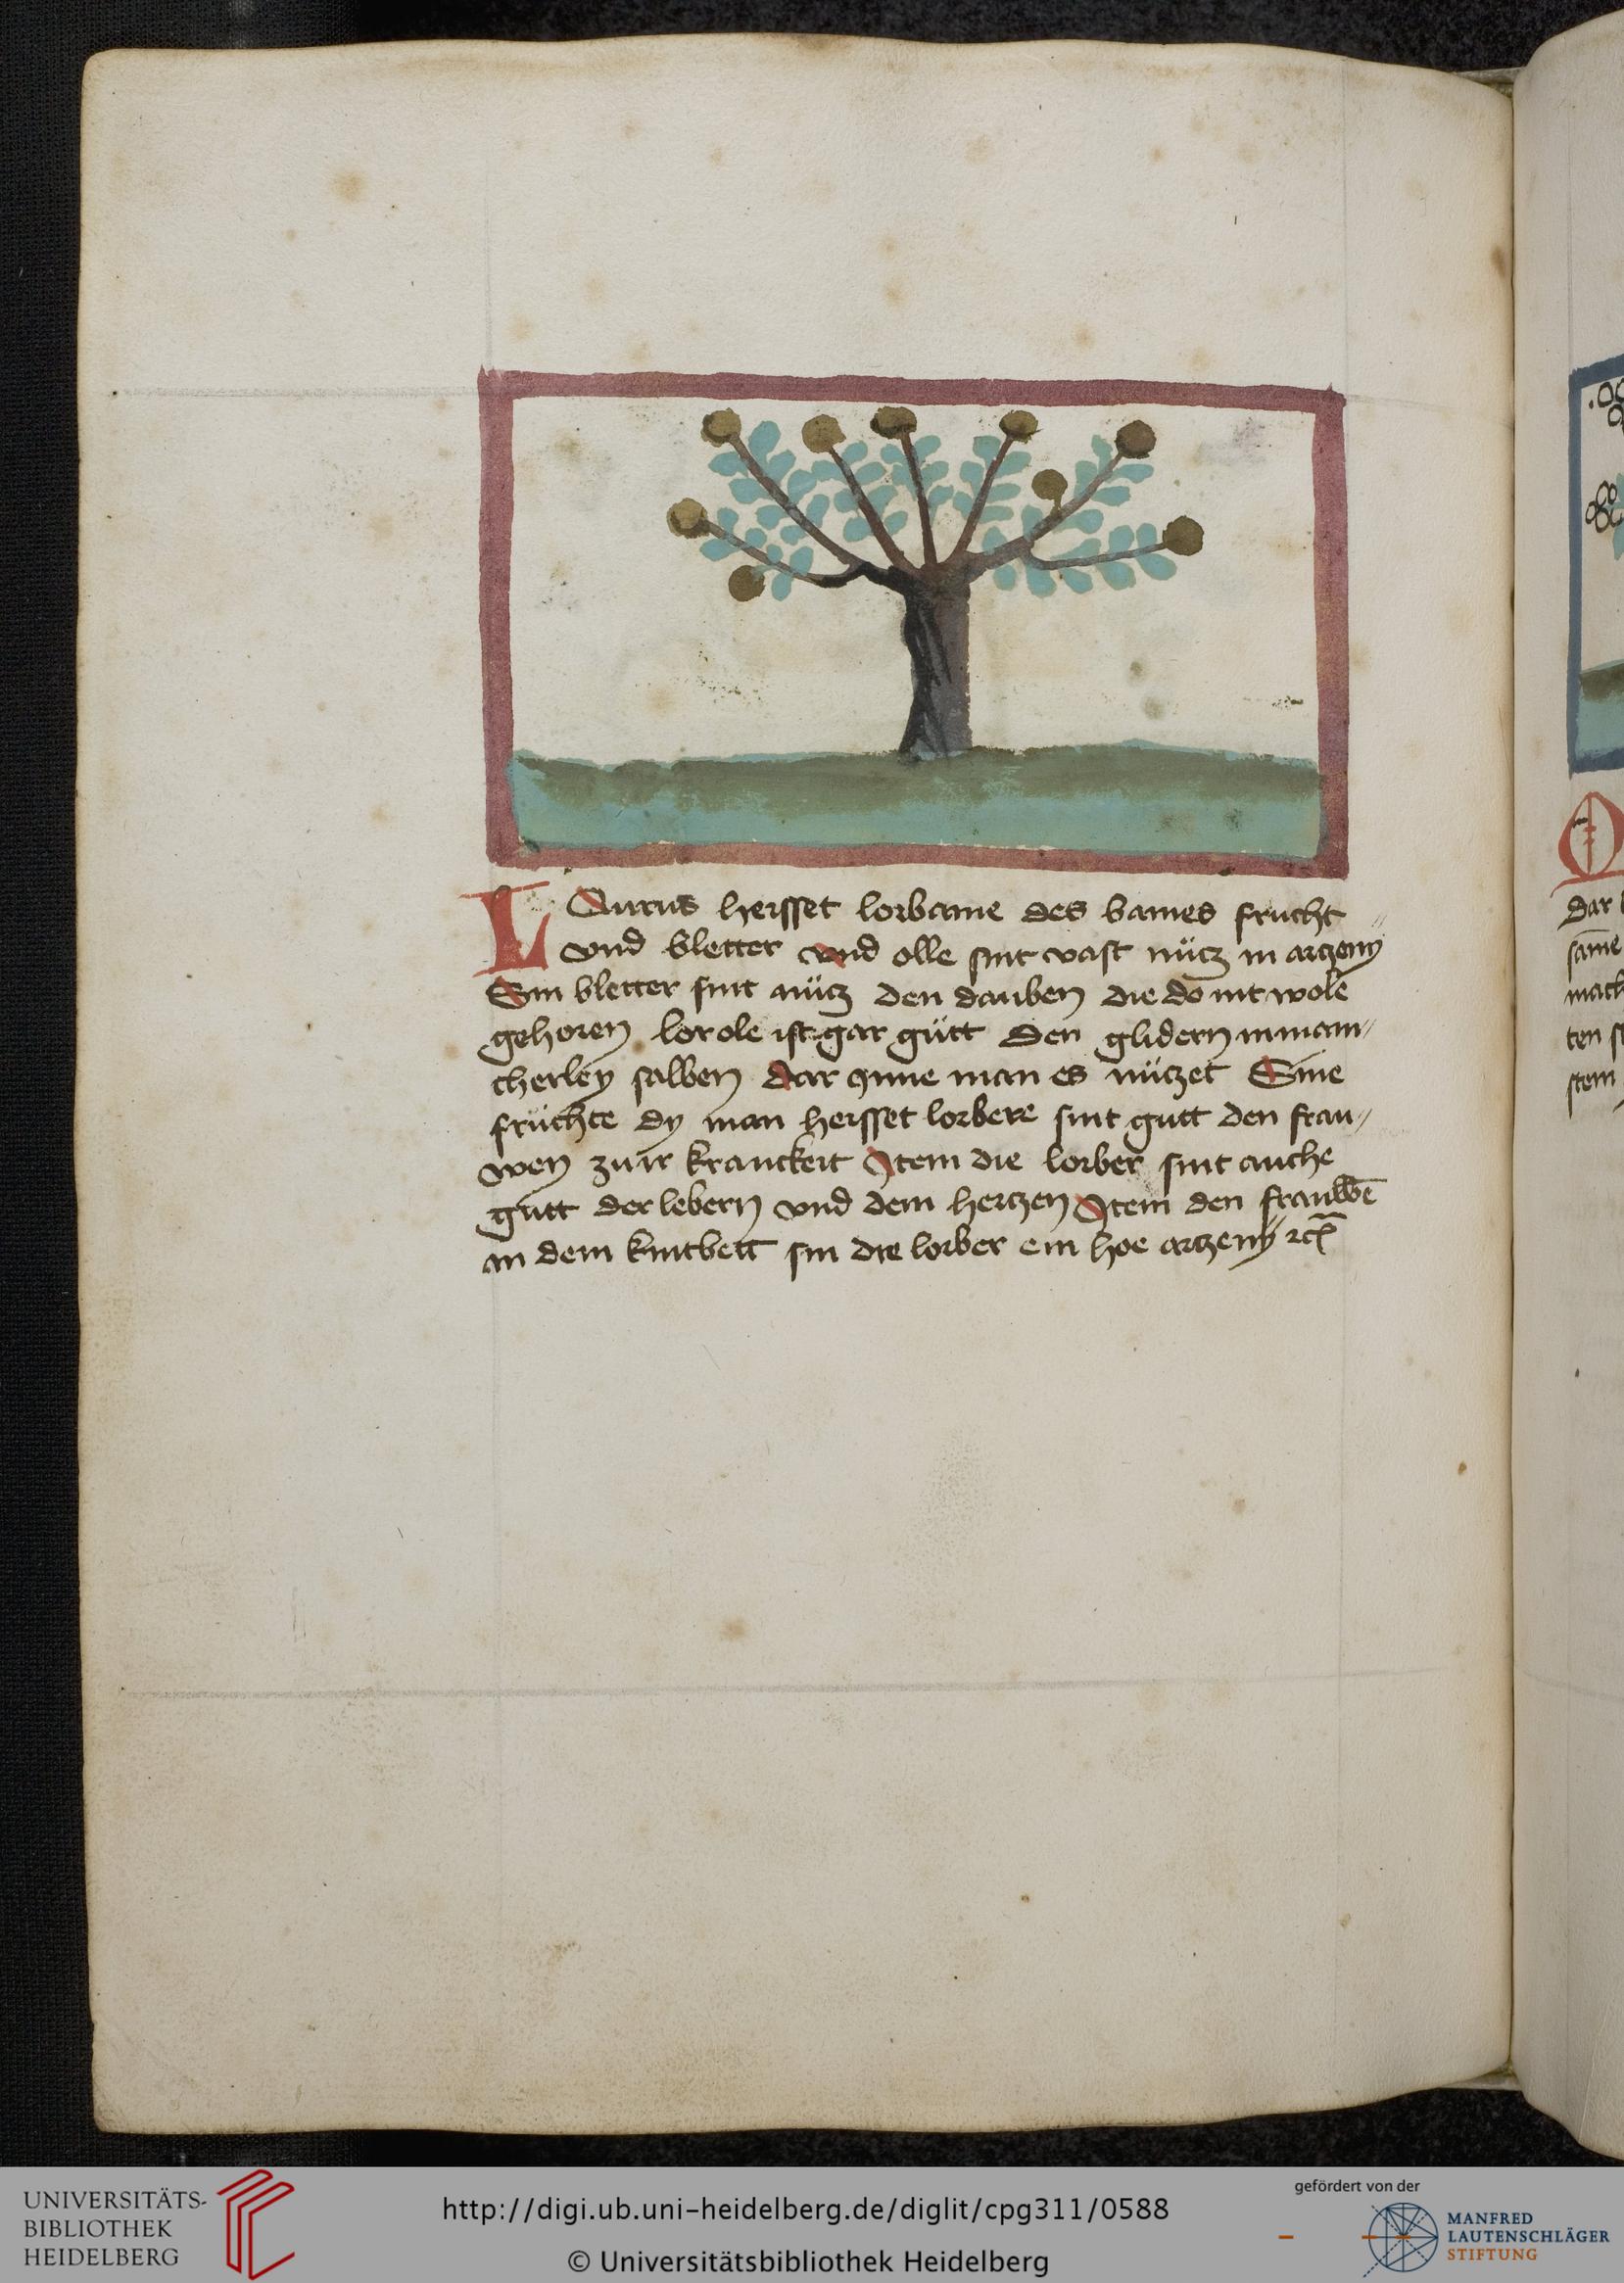 LAurus heisset lorbame des bames frucht
vnd bletter vnd olle sint vast nütz in artzeny
Sin bletter sint nütz den dauben die do nit wole
gehoren lorole ist gar gütt den glidern in mani-
cherley salben dar ynne man es nützet Sine
früchte dy man heisset lorbere sint gutt den frau-
wen zu ir kranckeit Item die lorber sint auche
gütt der lebern vnd dem hertzen Item den frauwē
an dem kintbett sin die lorber ein hoe artzeny
dar
samē
mach
ten
stein
UNIVERSITÄTS-
BIBLIOTHEK
HEIDELBERG
http://digi.ub.uni-heidelberg.de/diglit/cpg311/0588
© Universitätsbibliothek Heidelberg
gefördert von der
MANFRED
LAUTENSCHLÄGER
STIFTUNG